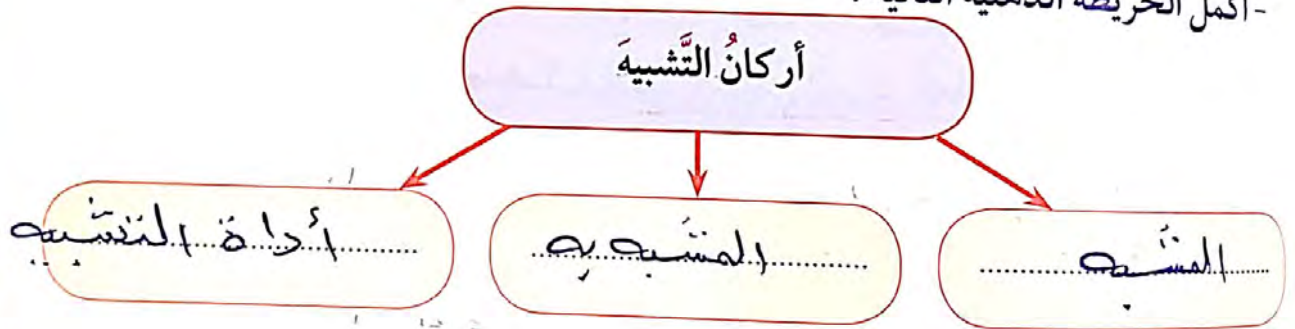 - أكمل الخريطة الذهنية التالية
أركانُ التَّشبيهَ
المشبه
المشبه به
أداة التشبيه